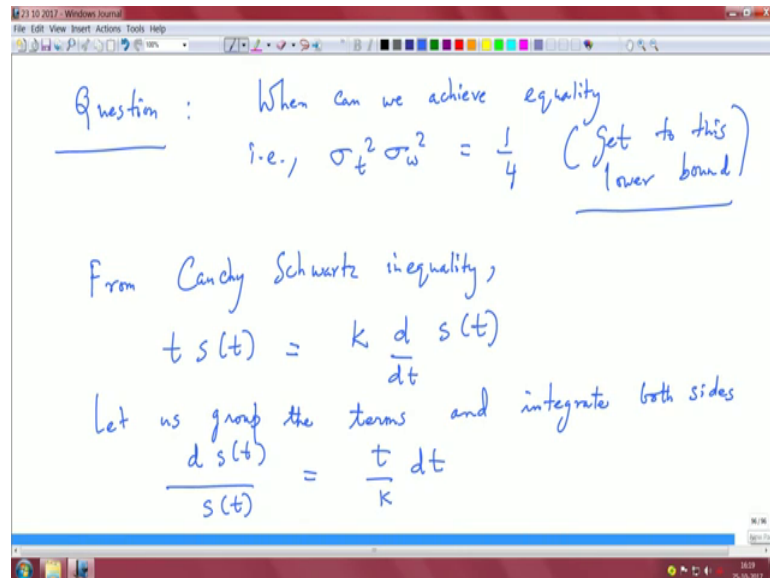 23 10 2017 - Windows Journal
File Edit View Insert Actions Tools Help
100%
B I
Question : When can we achieve equality
i.e., σt² σω² = 1/4 (Get to this
lower bound)
From Cauchy Schwartz inequality,
t s(t) = k d/dt s(t)
Let us group the terms and integrate both sides
d s(t)/s(t) = t/k dt
96/96
16:19
25-10-2017